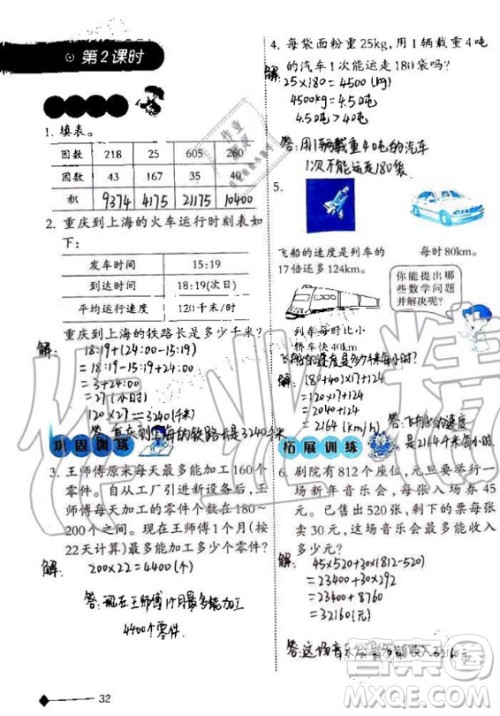 第2课时
1. 填表。
因数 218 25 605 260
因数 43 167 35 40
积 9374 4175 21175 10400
2. 重庆到上海的火车运行时刻表如
下：
发车时间 15:19
到达时间 18:19(次日)
平均运行速度 120千米/时
重庆到上海的铁路长是多少千米？
解: 18:19+(24:00-15:19)
=3+24(时)
=27(小时)
120×27=3240(千米)
巩固训练
3. 王师傅原来每天最多能加工160个
零件。自从工厂引进新设备后，王
师傅每天能加工零件的个数在180~
200个之间。现在王师傅1个月(按
22天计算)最多能加工多少个零件？
解: 200×22=4400(个)
答:现在王师傅1个月最多能加工
4400个零件.
4. 每袋面粉重25kg,用1辆载重4吨
的汽车1次能运走180袋吗？
解: 25×180=4500(kg)
4500kg=4.50吨
4.50吨>40吨
答:用1辆载重40吨的汽车
1次不能运走180袋.
5.
飞船的速度是列车的
17倍还多124km。
每时80km。
你能提出哪
些数学问题
并解决呢？
列车每时比小
轿车快40km。
拓展训练
6. 剧院有812个座位，元旦要进行一
场新年音乐会，每张入场券45
元。已售出520张，剩下的票每张
卖30元，这场音乐会最多能收入
多少元？
解: 45×520+30×(812-520)
=23400+30×292
=23400+8760
=32160(元)
32